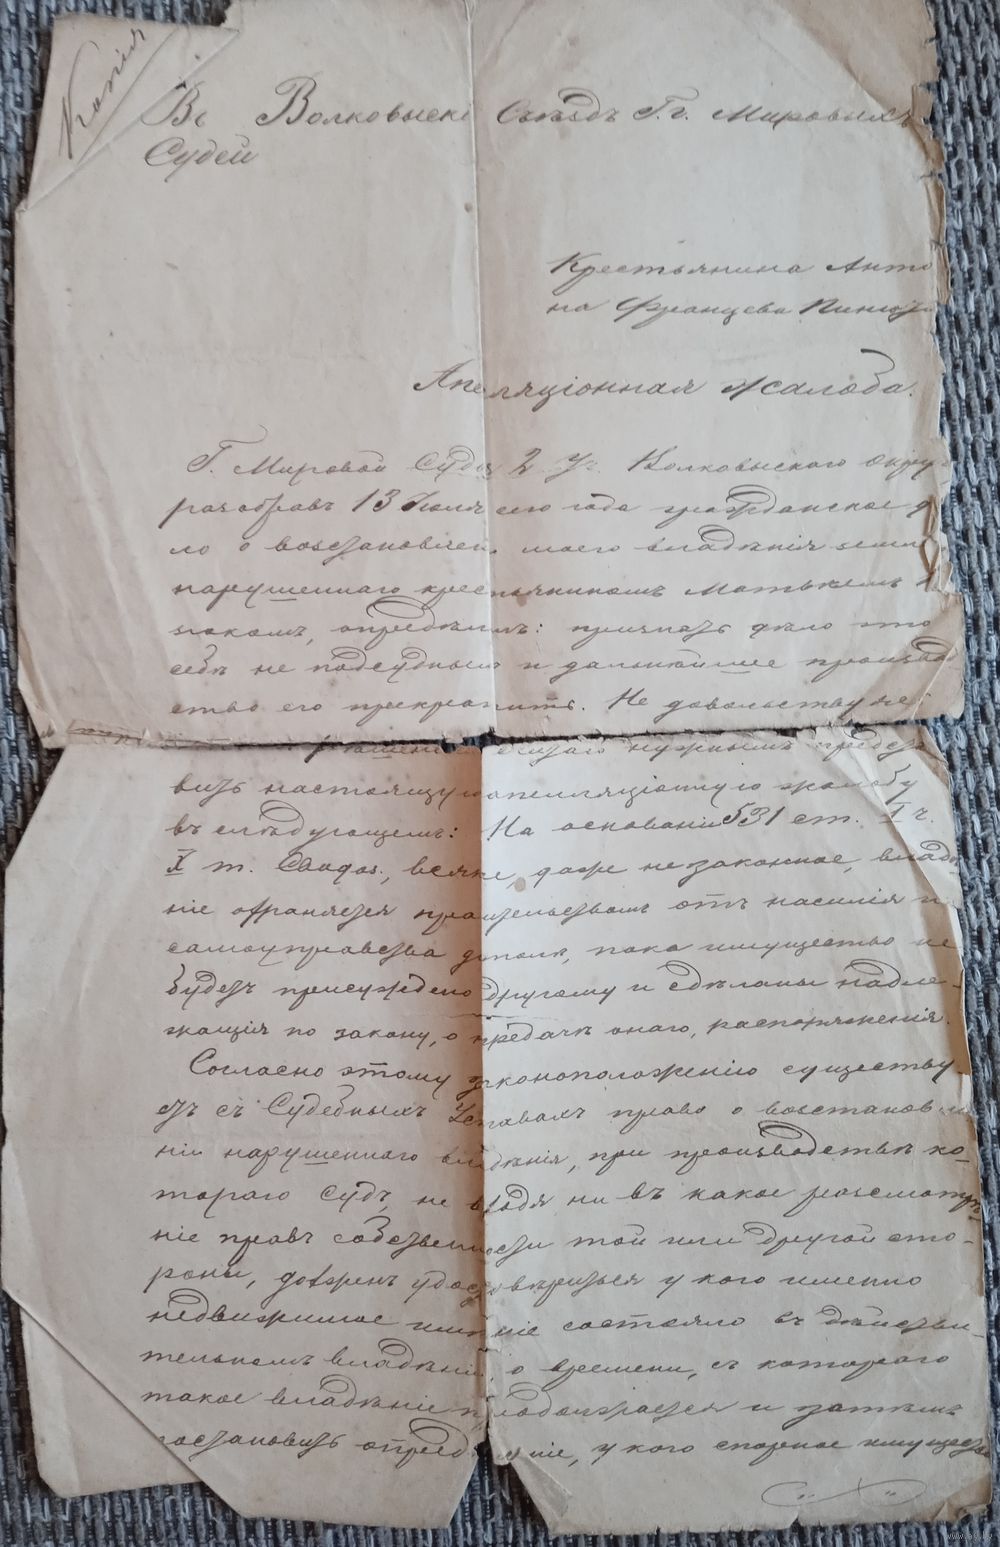 Копія
Въ Волковыскі Съѣздъ Г.г. Мировыхъ
Судей
Крестьянина Анто
на Францева
Апелляціонная жалоба.
Г. Мировой Судья 2 Уч. Волковыскаго Окру
разобравъ 13 Іюля сего года гражданское д
ло о возстановлен моего владѣнія земл
нарушеннаго крестьяниномъ Матвѣемъ
опредѣлилъ: признать дѣло это
себѣ не подсуднымъ и дальнѣйшее производ
ство его прекратить. Не довольствуясь
рѣшеніемъ нужнымъ предста
вить настоящую апелляціонную жалобу
въ слѣдующемъ: На основаніи 531 ст. I ч.
X т. всякое, даже незаконное, владѣ
ніе охраняется правительствомъ отъ насилія и
самоуправства дотоль, пока имущество не
будетъ присуждено другому и сдѣланы надле-
жащія по закону, о передачѣ онаго, распоряженія.
Согласно этому законоположенію существу-
етъ въ Судебныхъ Уставахъ право о возстановле
ніи нарушеннаго владѣнія, при производствѣ ко-
тораго Судъ, не входя ни въ какое разсмотрѣ-
ніе правъ собственности той или другой сто-
роны, долженъ удостовѣриться у кого именно
недвижимое имѣніе состояло въ дѣйстви-
тельномъ владѣніи, о времени, съ котораго
такое владѣніе продолжается и затѣмъ
постановить опредѣленіе, у кого спорное имуществ